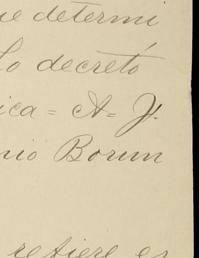 ue determi
Lo decretó
ica = A= J.
nio Borun
refiere es